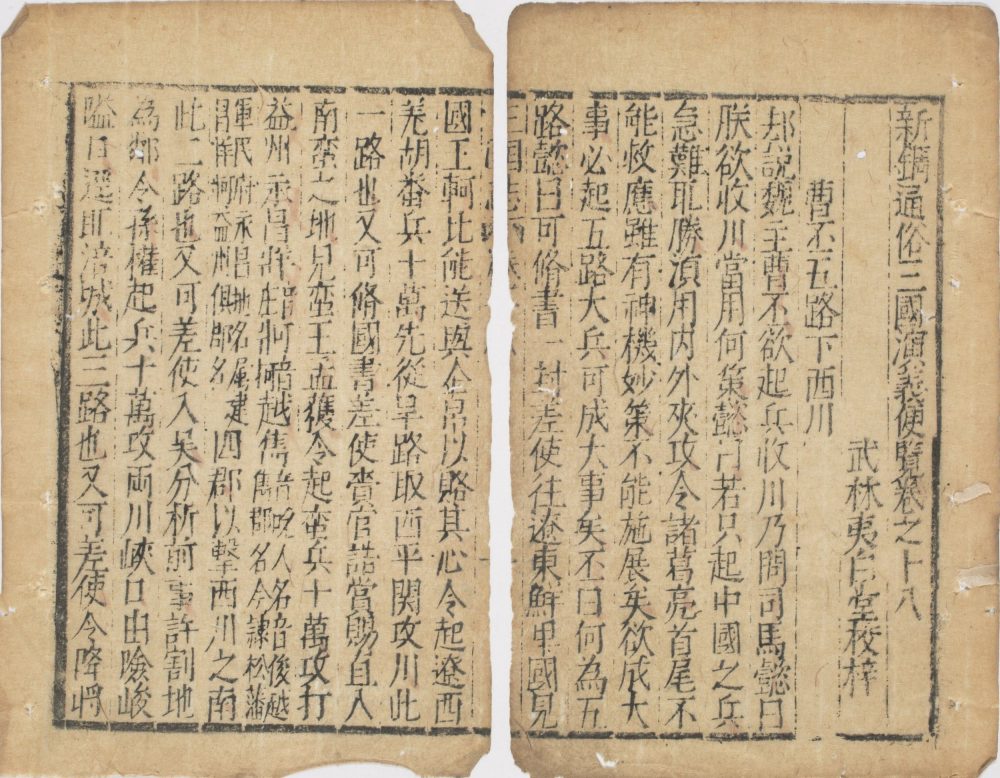 新鐫通俗三國演義便覽卷之十八
武林夷白堂校梓
曹丕五路下西川
却說魏主曹丕欲起兵收川乃問司馬懿曰
朕欲收川當用何策懿曰若只起中國之兵
急難取勝須用内外夾攻令諸葛亮首尾不
能救應雖有神機妙策不能施展矣欲成大
事必起五路大兵可成大事矣丕曰何為五
路懿曰可脩書一封差使往遼東鮮卑國見
三國志
國王軻比能送與金帛以賂其心令起遼西
羌胡番兵十萬先從旱路取西平関攻川此
一路也又可脩國書差使賫官誥賞賜直入
南蛮之地見蛮王孟獲令起蛮兵十萬攻打
益州永昌牂牁越雋四郡以擊西川之南
此二路也又可差使入吴分析前事許割地
為鄰令孫權起兵十萬攻兩川峽口由險峻
隘口逕取涪城此三路也又可差使令降將